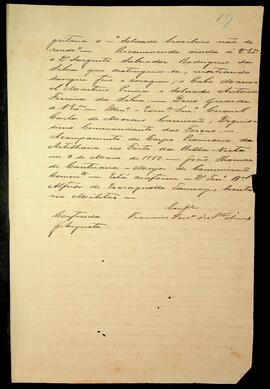 19
gritava o - "Soldado brasileiro não se
rende" - Recommendo ainda à V. Exª
o 2º Sargento Salvador Rodrigues da
Silva que distinguio-se, mostrando
sangue frio e coragem, o Cabo Mano-
el Martins e Soldado Antonio
Ferreira da Silva. - Deus Guarde
a V. Exª - Coronel
Carlos de Moraes Camisão, Dignis-
simo Commandante das Forças. -
Acampamento do Corpo Provisorio de
Artilharia no Forte da Bella Vista
em 9 de Maio de 1867. - João Thomaz
de Cantuaria - Major de Commissão
Commte - Está conforme -
Alfredo de Escragnolle Taunay, Secreta-
rio Militar.
Conferida
Augusto